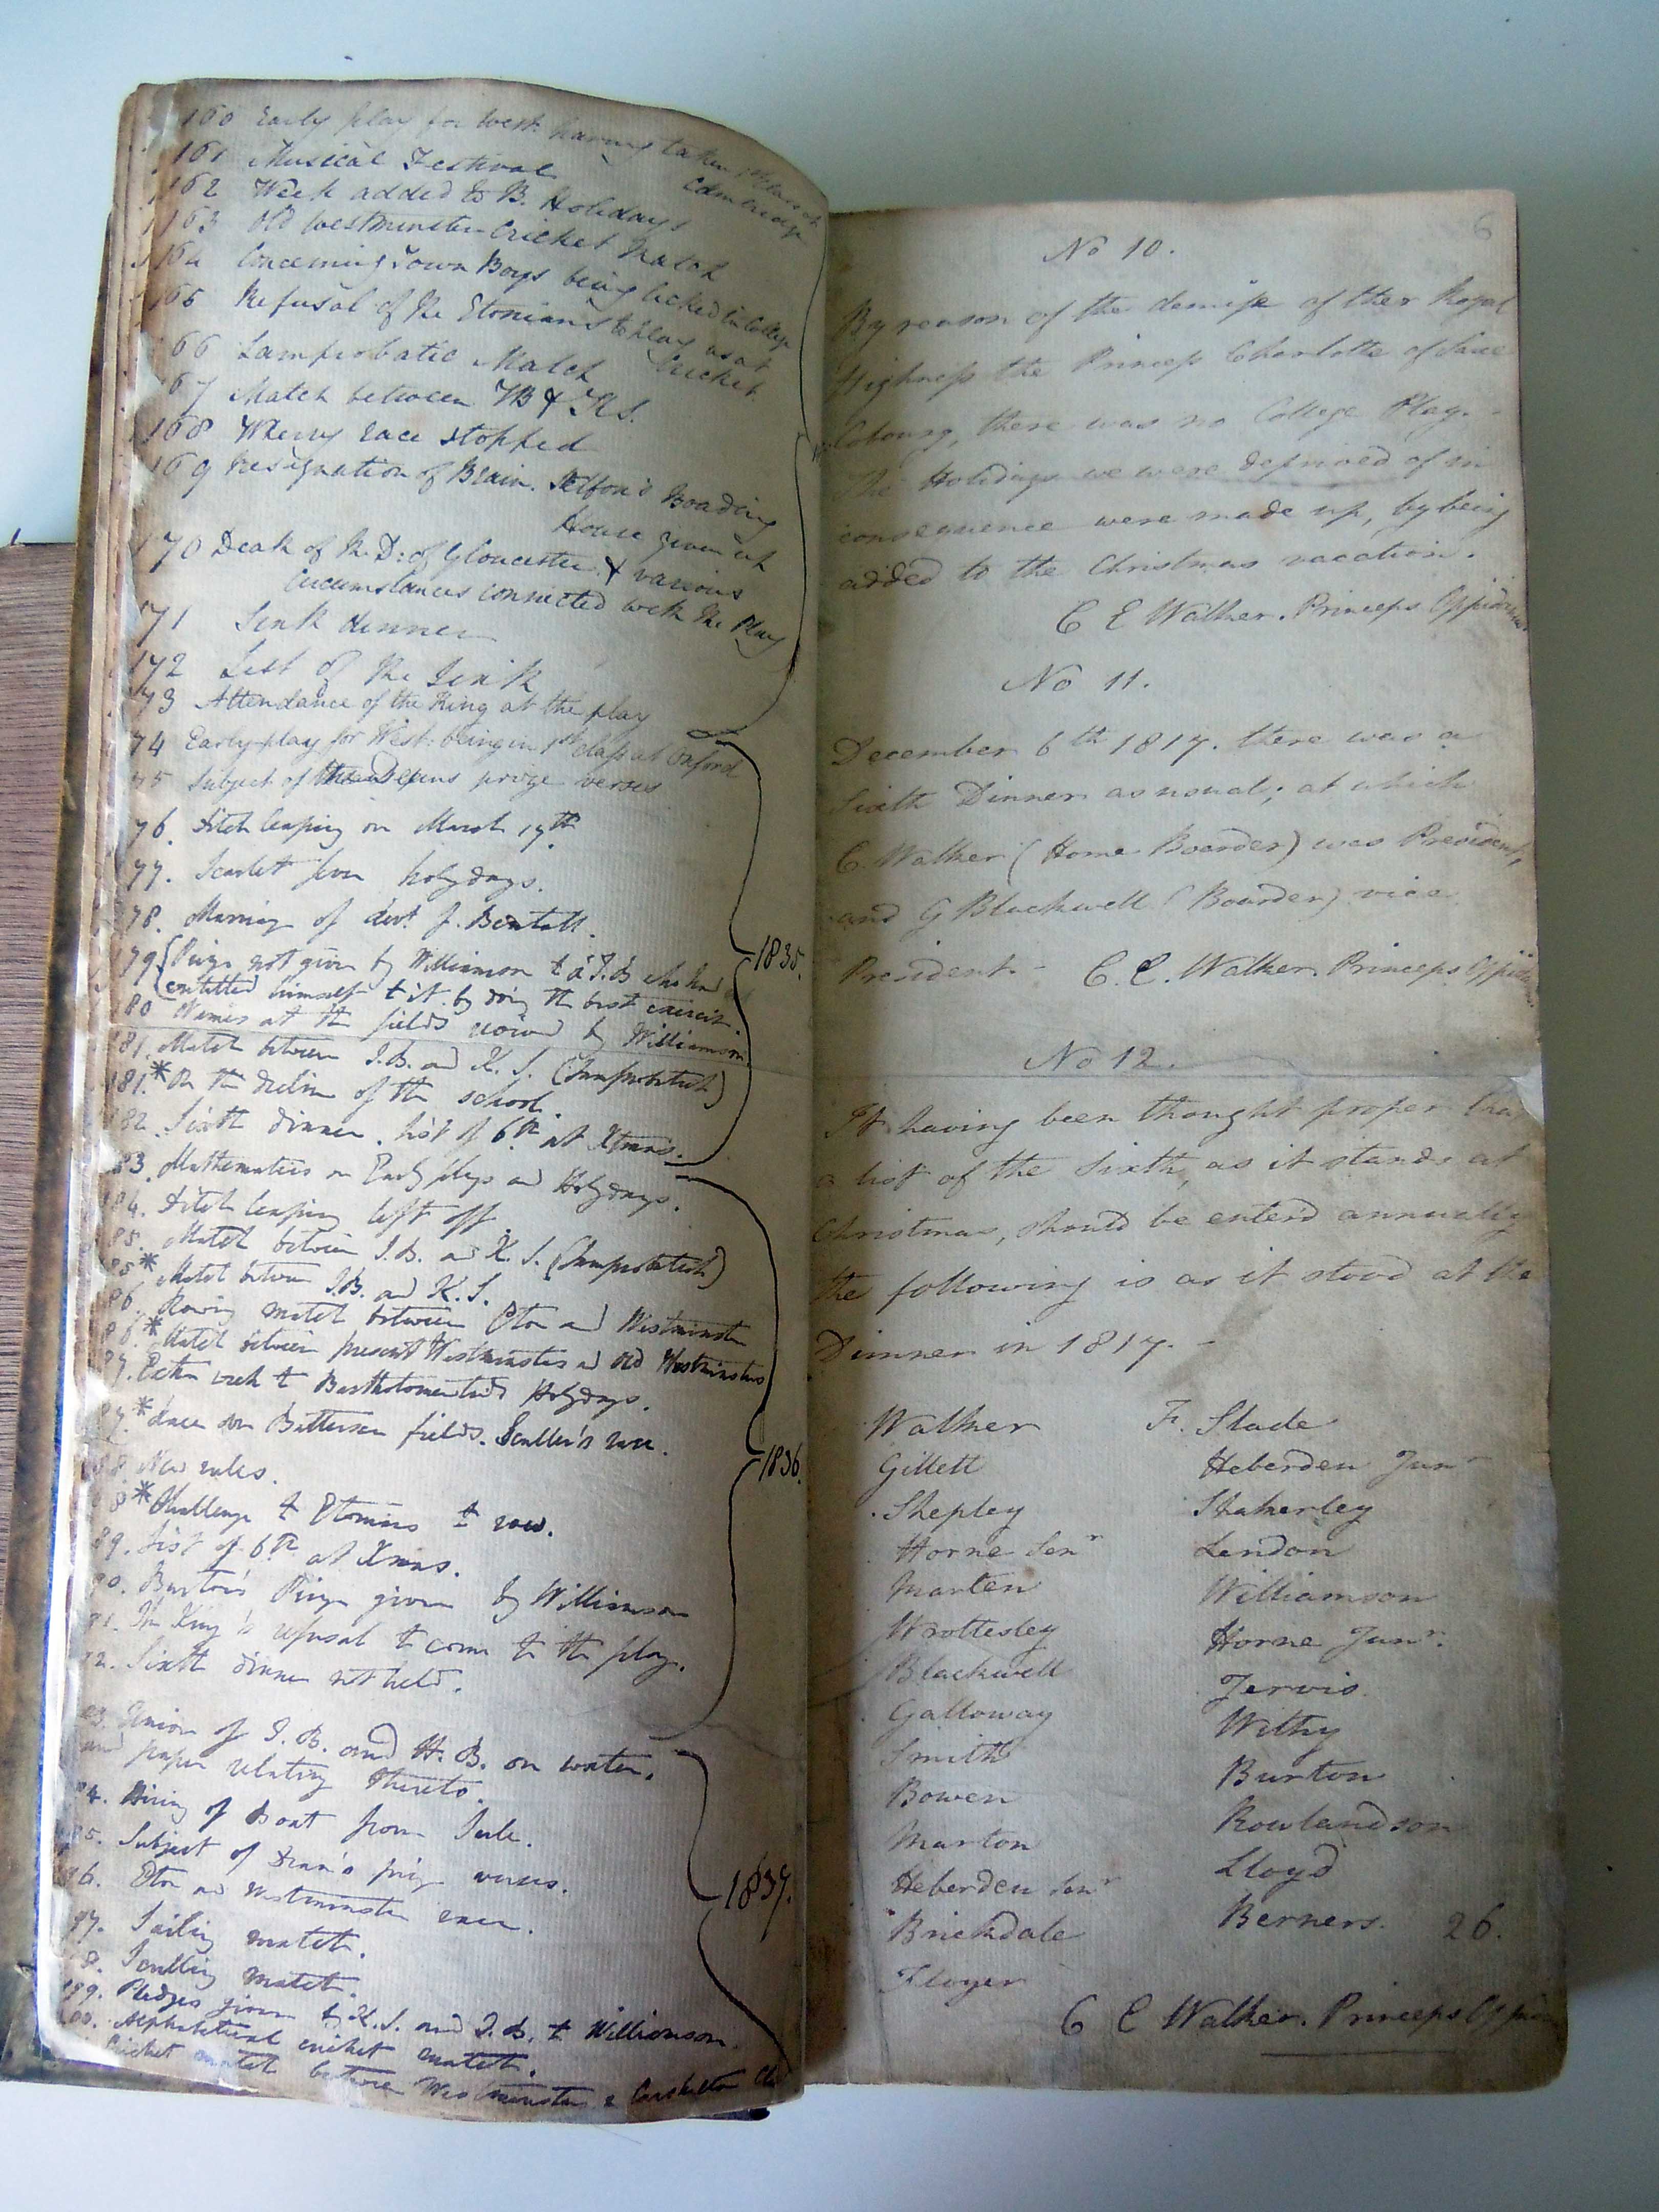 160 Early play for West: having taken 1st class at
Cambridge
161 Musical Festival
162 Week added to B. Holidays
163 Old Westminster Cricket Match
164 Concerning Town Boys being licked in College
165 Refusal of the Etonians to play us at
Cricket
166 Lamprobatic Match
167 Match between TB & KS.
168 Wherry race stopped
169 Resignation of Boarding
House given up
170 Death of the D: of Gloucester & various
circumstances connected with the Play
171 Sixth dinner
172 List of the Sixth
173 Attendance of the King at the play
74 Early play for West: being in 1st class at Oxford
75 Subject of the Deans prize verses
76. Ditch leaping on March 17th
77. Scarlet fever holydays.
178. Marriage of J. Bentall.
1835.
179 Prize not given by Williamson to a T.B. who had
entitled himself to it by doing the best exercise.
180 Names at the fields by Williamson.
181. Match between T.B. and K.S. (Lamprobatick)
181.* On the decline of the school.
182. Sixth dinner. list of 6th at Xmas.
183. Mathematics on Early plays and Holydays.
184. Ditch leaping left off.
185. Match between T.B. and K.S. (Lamprobatick)
85* Match between T.B. and K.S.
86. Rowing match between Eton and Westminster
86* Match between present Westminsters and Old Westminsters
87. Extra week to Bartholomewtide Holydays.
87.* Race Battersea fields. Sculler's race.
1836.
88. New rules.
8* Challenge to Etonians to row.
89. List of 6th at Xmas.
90. Burton's Prize given by Williamson
91. The King's refusal to come to the play.
92. Sixth dinner not held.
93. Union of T.B. and H.B. on water,
and paper relating thereto.
94. Hiring of Boat from Searle.
95. Subject of Dean's prize verses.
1837.
96. Eton and Westminster race.
97. Sailing match.
8. Sculling match.
199. Pledges given by K.S. and T.B. to Williamson.
200. Alphabetical cricket match.
Cricket match between Westminster & Carshalton Club
6
No 10.
By reason of the demise of Her Royal
Highness the Princess Charlotte of Saxe
Cobourg, there was no College Play. -
The Holidays we were deprived of in
consequence were made up, by being
added to the Christmas vacation.
C E Walker. Princeps Oppidanus.
No 11.
December 6th 1817. there was a
Sixth Dinner as usual; at which
C. Walker (Home Boarder) was President,
and G Blackwell (Boarder) vice
President. - C. E. Walker Princeps Oppidanus.
No 12.
It having been thought proper that
a list of the Sixth, as it stands at
Christmas, should be enterd annually
the following is as it stood at the
Dinner in 1817. -
Walker F. Slade
Gillett Heberden Junr
Shepley Stakerley
Horne Senr Lendon
Marten Williamson
Wrottesley Horne Junr.
Blackwell Jervis
Galloway Withy
Smith Burton
Bowen Rowlandson
Marton Lloyd
Heberden Senr Berners. 26.
Brickdale
Floyer
C E Walker. Princeps Oppidanus